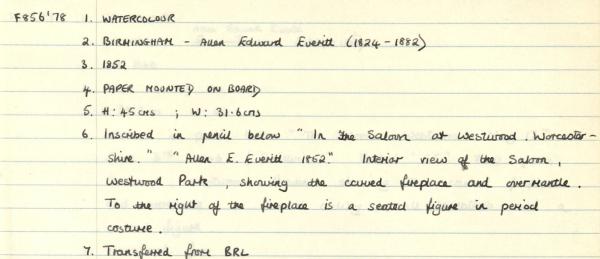 F856'78 1. WATERCOLOUR
2. BIRMINGHAM - Allen Edward Everitt (1824-1882)
3. 1852
4. PAPER MOUNTED ON BOARD
5. H: 45cms ; W: 31.6cms
6. Inscribed in pencil below " In the Saloon at Westwood. Worcester-
shire." "Allen E. Everitt 1852." Interior view of the Saloon,
Westwood Park, showing the carved fireplace and overmantle.
To the right of the fireplace is a seated figure in period
costume.
7. Transferred from BRL